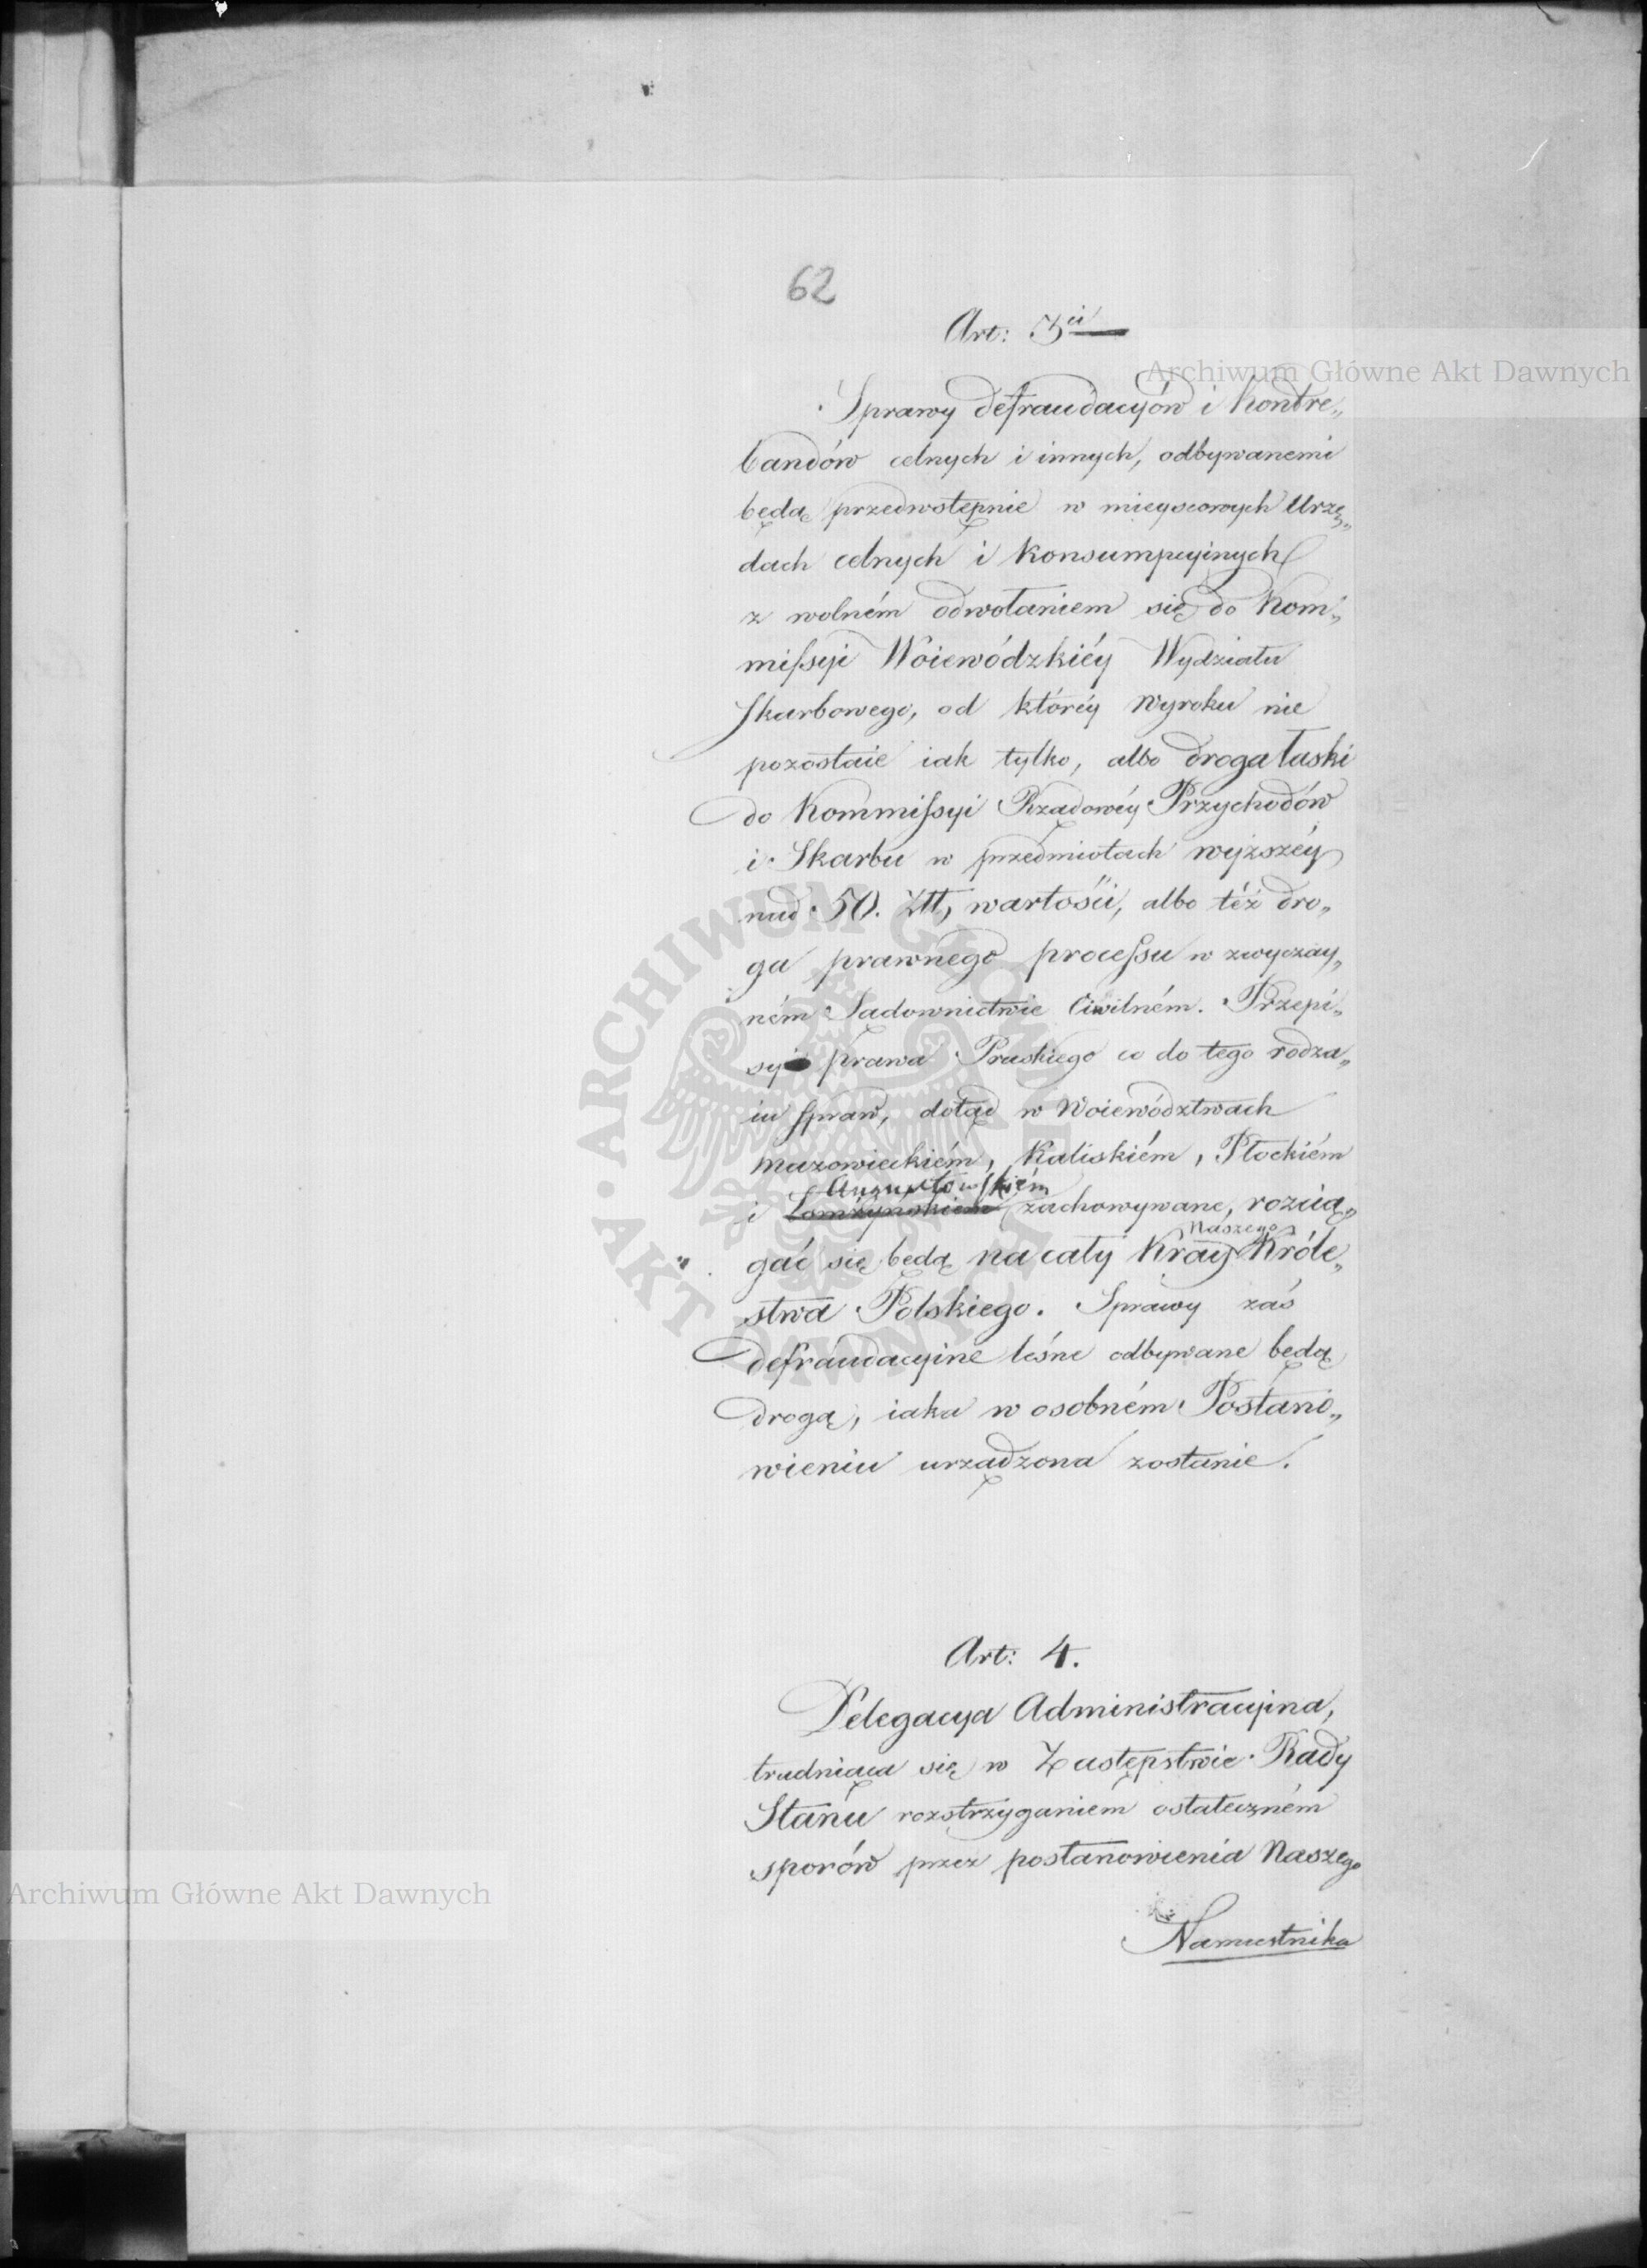 62
Art: 3ci
Sprawy defraudacyów i Kontre„
bandów celnych i innych, odbywanemi
będą przedwstępnie w mieyscowych Urzę„
dach celnych i Konsumpcyinych
z wolném odwołaniem się do Kom„
missyi Woiewódzkiéy Wydziału
Skarbowego, od któréy wyroku nie
pozostaie iak tylko, albo droga łaski
do Kommissyi Rządowéy Przychodów
i Skarbu w przedmiotach wyższéy
nad 50. Złł, wartości, albo téż dro„
ga prawnego processu w zwyczay„
ném Sądownictwie Ciwilném. Przepi„
sy prawa Pruskiego co do tego rodza„
iu spraw, dotąd w Woiewództwach
mazowieckiém, Kaliskiém, Płockiém
Augustowskiém
i Łomżyńskiem zachowywane, roziią„
Naszego
gać się będą na cały Kray Króle„
stwa Polskiego. Sprawy zaś
defraudacyine leśne odbywane będą
drogą, iaka w osobném Postano„
wieniu urządzona zostanie.
Art: 4.
Delegacya Administracyina,
trudniąca się w Zastępstwie Rady
Stanu rozstrzyganiem ostateczném
sporów przez postanowienia Naszego
Namiestnika
Archiwum Główne Akt Dawnych
Archiwum Główne Akt Dawnych
ARCHIWUM GŁÓWNE AKT DAWNYCH